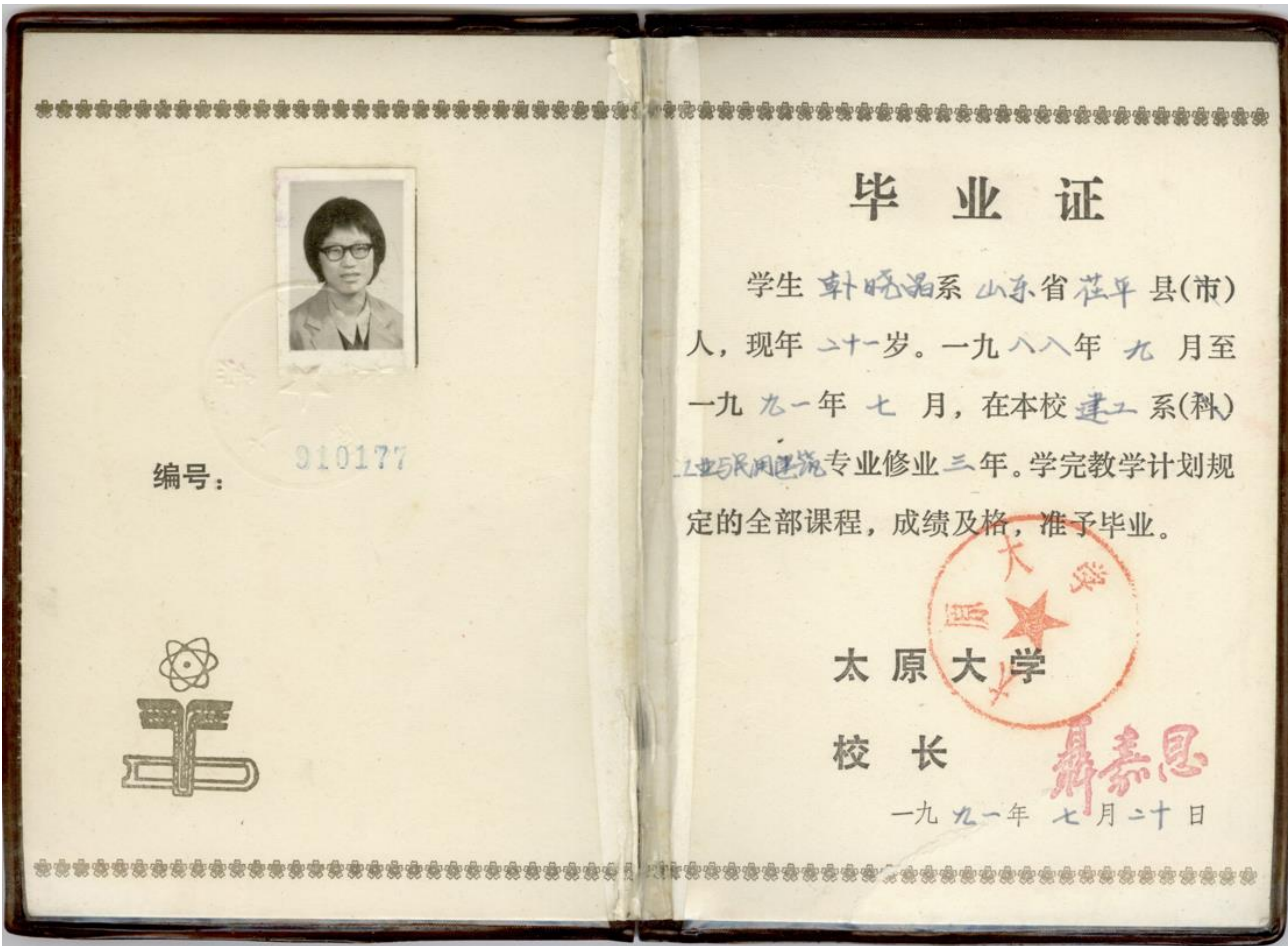 编号：
910177
毕业证
学生 韩晓晶系 山东省 茌平 县(市)
人，现年 二十一岁。一九八八年 九 月至
一九九一年 七 月，在本校 建工 系(科)
工业与民用建筑专业修业 三年。学完教学计划规
定的全部课程，成绩及格，准予毕业。
太原大学
太原大学
校长
聂嘉恩
一九九一年 七月二十日